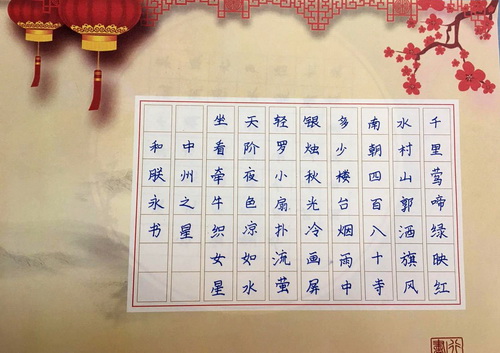 千里莺啼绿映红
水村山郭酒旗风
南朝四百八十寺
多少楼台烟雨中
银烛秋光冷画屏
轻罗小扇扑流萤
天阶夜色凉如水
坐看牵牛织女星
中州之星
和朕永书